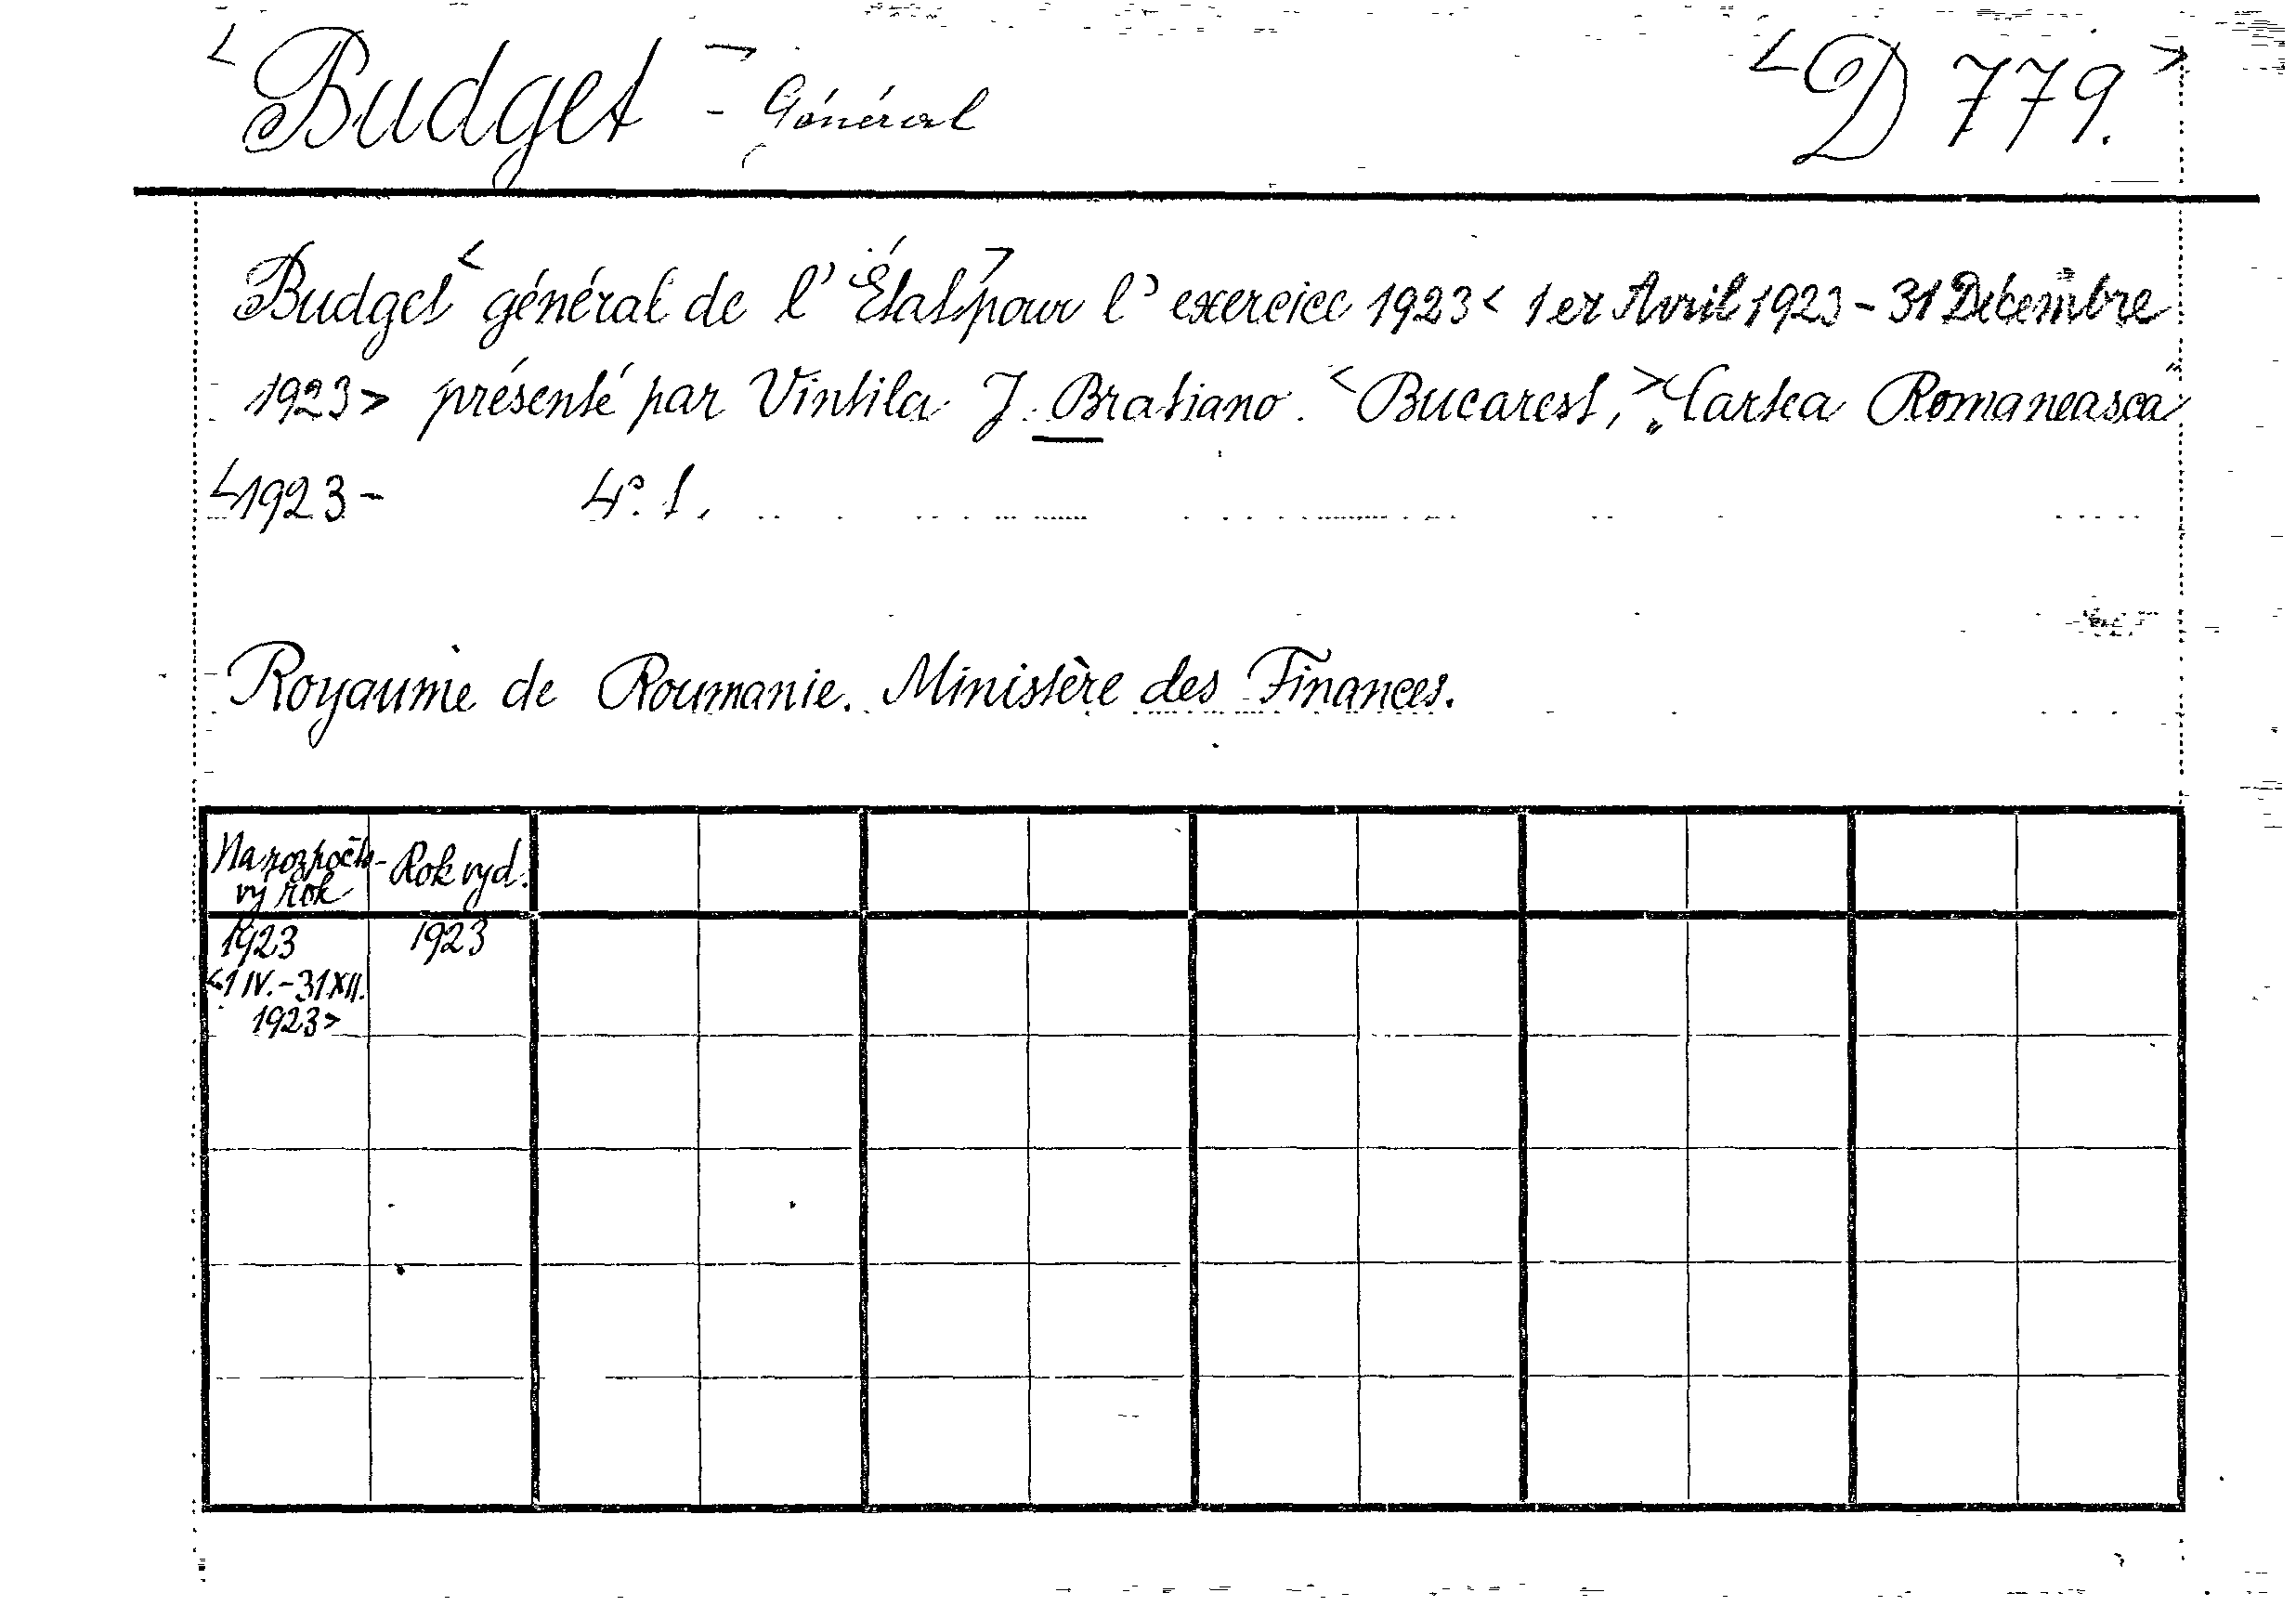 <Budget> - Général <D 779.>
Budget <général de l'État> pour l'exercice 1923 < 1er Avril 1923 - 31 Décembre
1923> présenté par Vintila J. Bratiano. <Bucarest,> „Cartea Romaneasca"
<1923 - 4°. f.
Royaume de Roumanie. Ministère des Finances.
Na rozpočto- Rok vyd.
vý rok
1923 1923
<1 IV. - 31 XII.
1923>